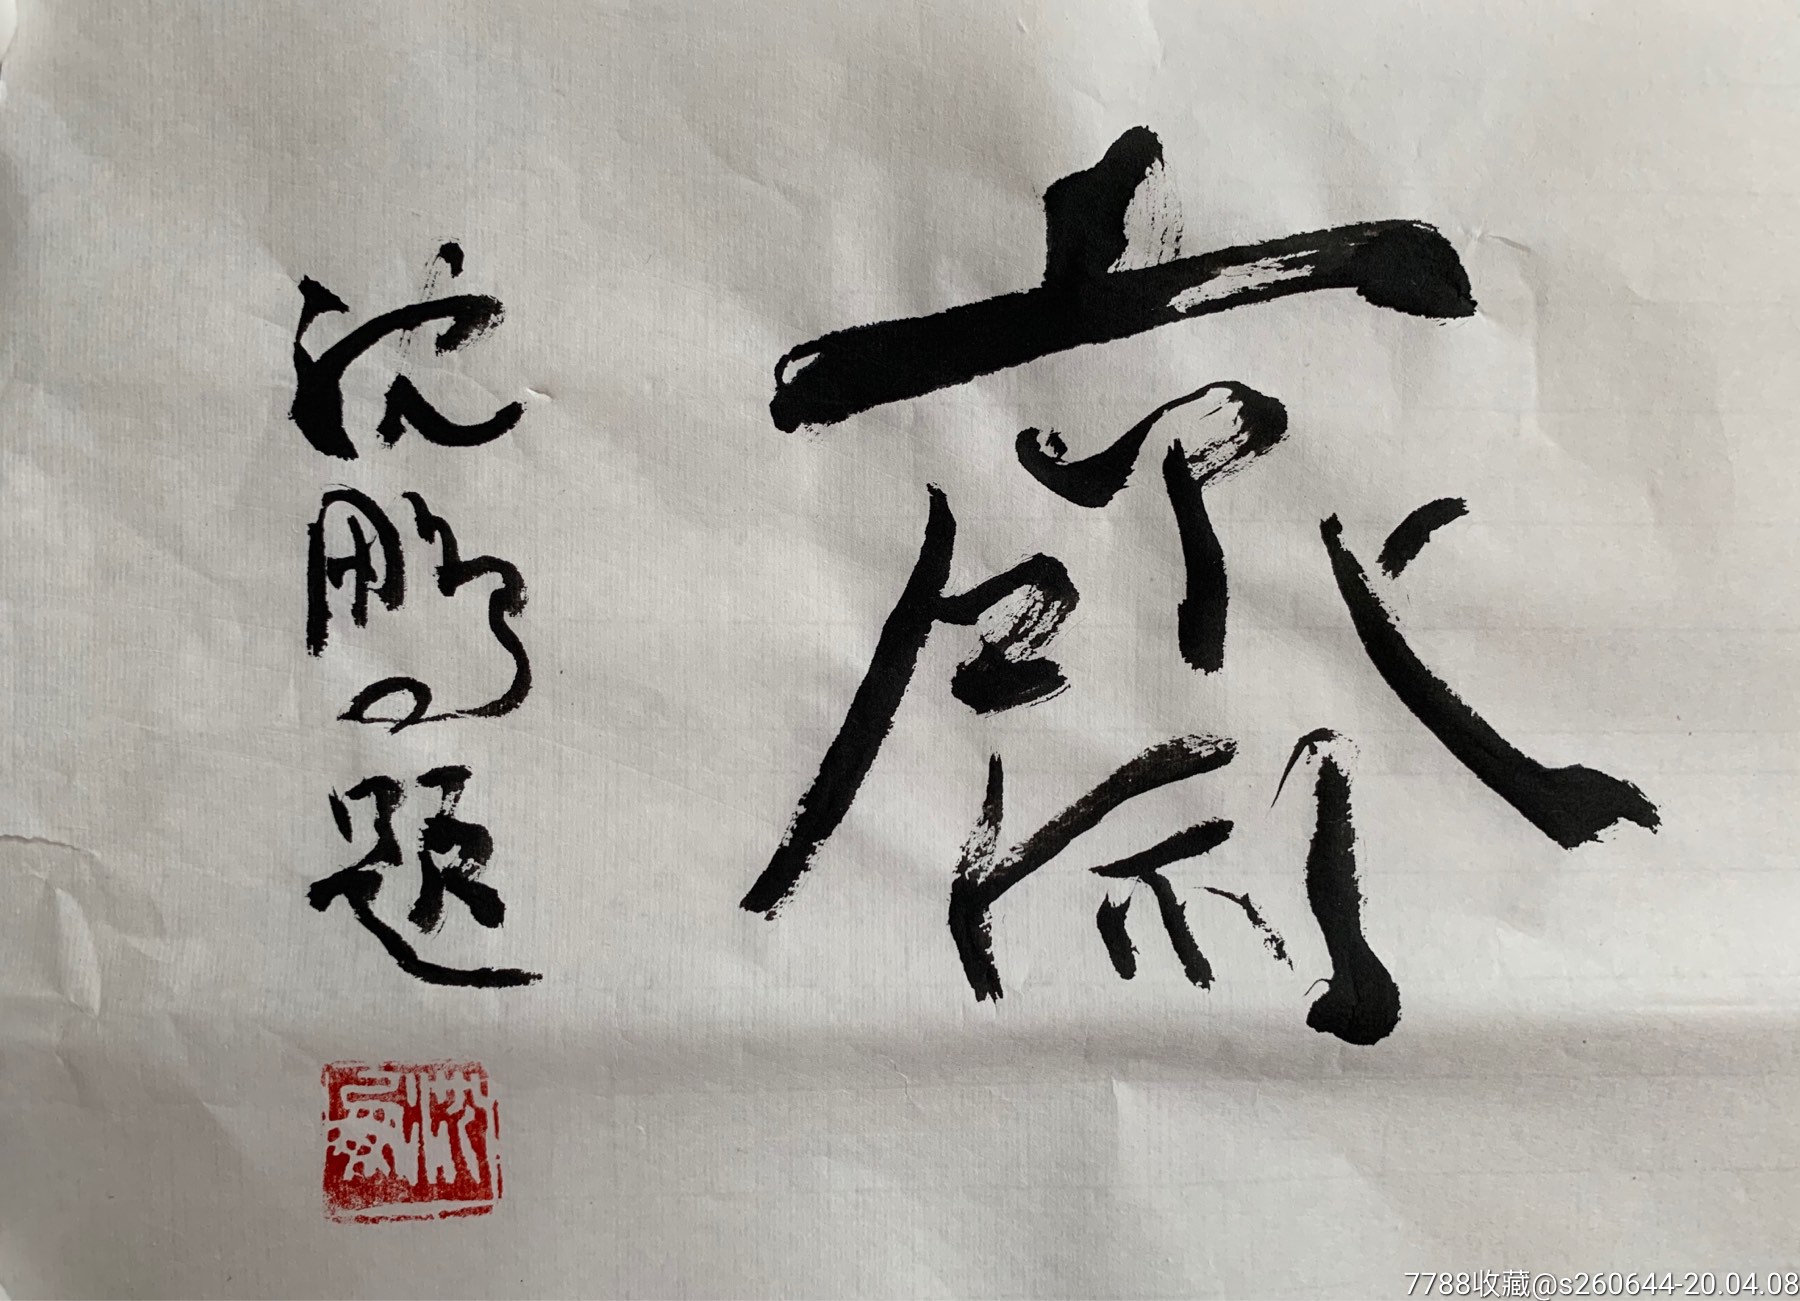 齋
沈鹏题
7788收藏@s260644-20.04.08